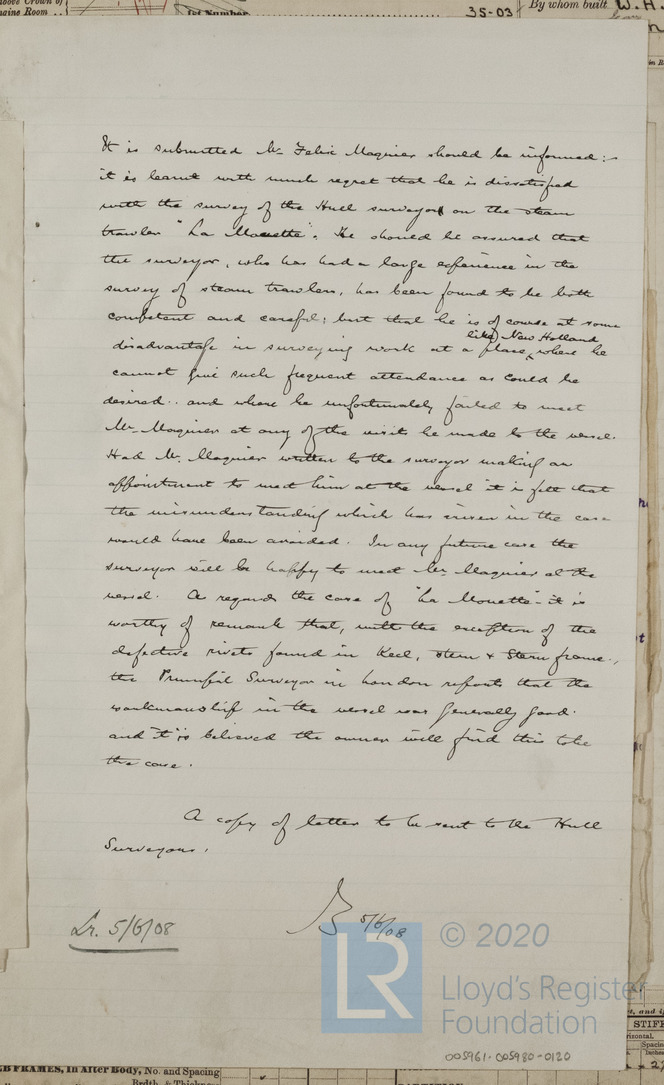 Above Crown of
Engine Room ..
1st Number
35-03
By whom built
W. H.
It is submitted Mr Felix Maquier should be informed:-
it is learnt with much regret that he is dissatisfied
with the survey of the Hull surveyor on the steam
trawler "La Mouette". He should be assured that
the surveyor, who has had a large experience in the
survey of steam trawlers, has been found to be both
competent and careful; but that he is of course at some
like New Holland
disadvantage in surveying work at a place, where he
cannot give such frequent attendance as could be
desired.. and where he unfortunately failed to meet
Mr. Maquier at any of the visits he made to the vessel.
Had Mr. Maquier written to the surveyor making an
appointment to meet him at the vessel it is felt that
the misunderstanding which has arisen in the case
would have been avoided. In any future case the
surveyor will be happy to meet Mr. Maquier at the
vessel. As regards the case of "La Mouette" it is
worthy of remark that, with the exception of the
defective rivets found in Keel, Stem & Stern frame,
the Principal Surveyor in London reports that the
workmanship in the vessel was generally good.
and it is believed the owner will find this to be
the case.
A copy of letter to be sent to the Hull
Surveyors.
Lr. 5/6/08
5/6/08
LR
© 2020
Lloyd's Register
Foundation
005961-005980-0120
, and
STIFF
Spacing
FRAMES, in After Body, No. and Spacing
Brdth. & Thickness